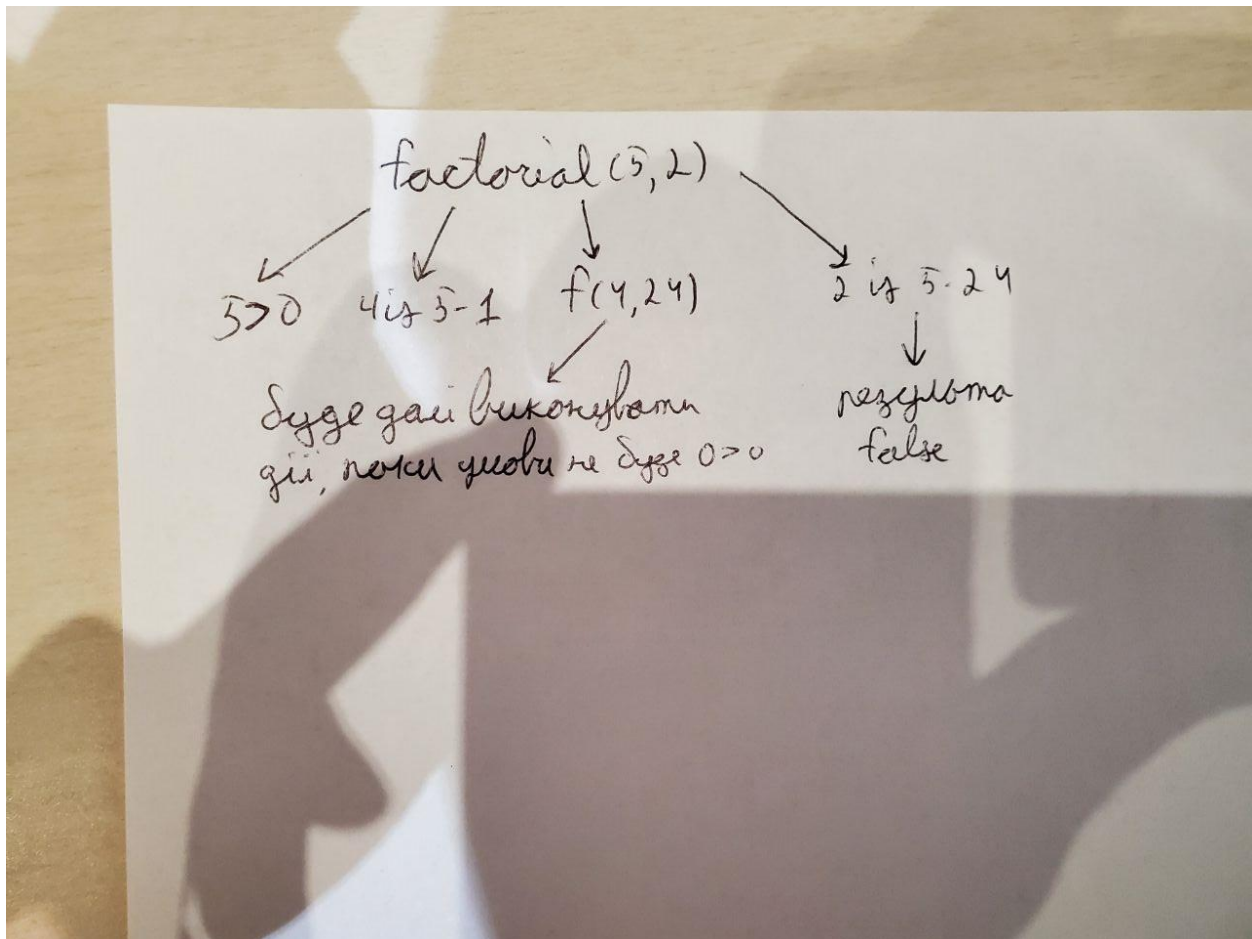 factorial (5, 2)
5>0 4 is 5-1 f(4, 24) 2 is 5·24
буде далі виконувати
дії, поки умови не буде 0>0
результа
false